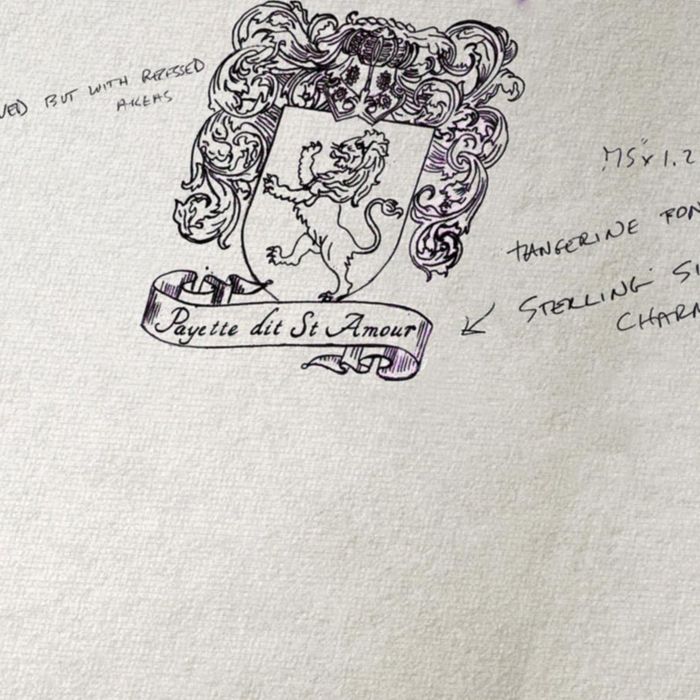 BUT WITH RECESSED
AREAS
.75" x 1.2
TANGERINE FON
STERLING SI
CHARM
Payette dit St Amour